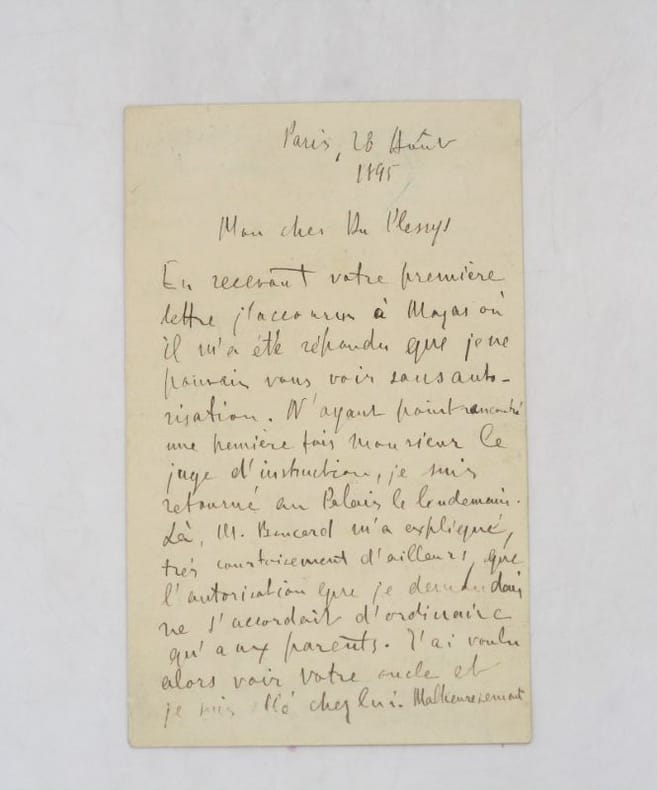 Paris, 28 Août
1895
Mon cher Du Plessys
En recevant votre première
lettre j'accourus à Mazas où
il m'a été répondu que je ne
pouvais vous voir sans auto-
risation. N'ayant point rencontré
une première fois monsieur le
juge d'instruction, je suis
retourné au Palais le lendemain.
Là, M. Boucard m'a expliqué,
très courtoisement d'ailleurs, que
l'autorisation que je demandais
ne s'accordait d'ordinaire
qu'aux parents. J'ai voulu
alors voir votre oncle et
je suis allé chez lui. Malheureusement